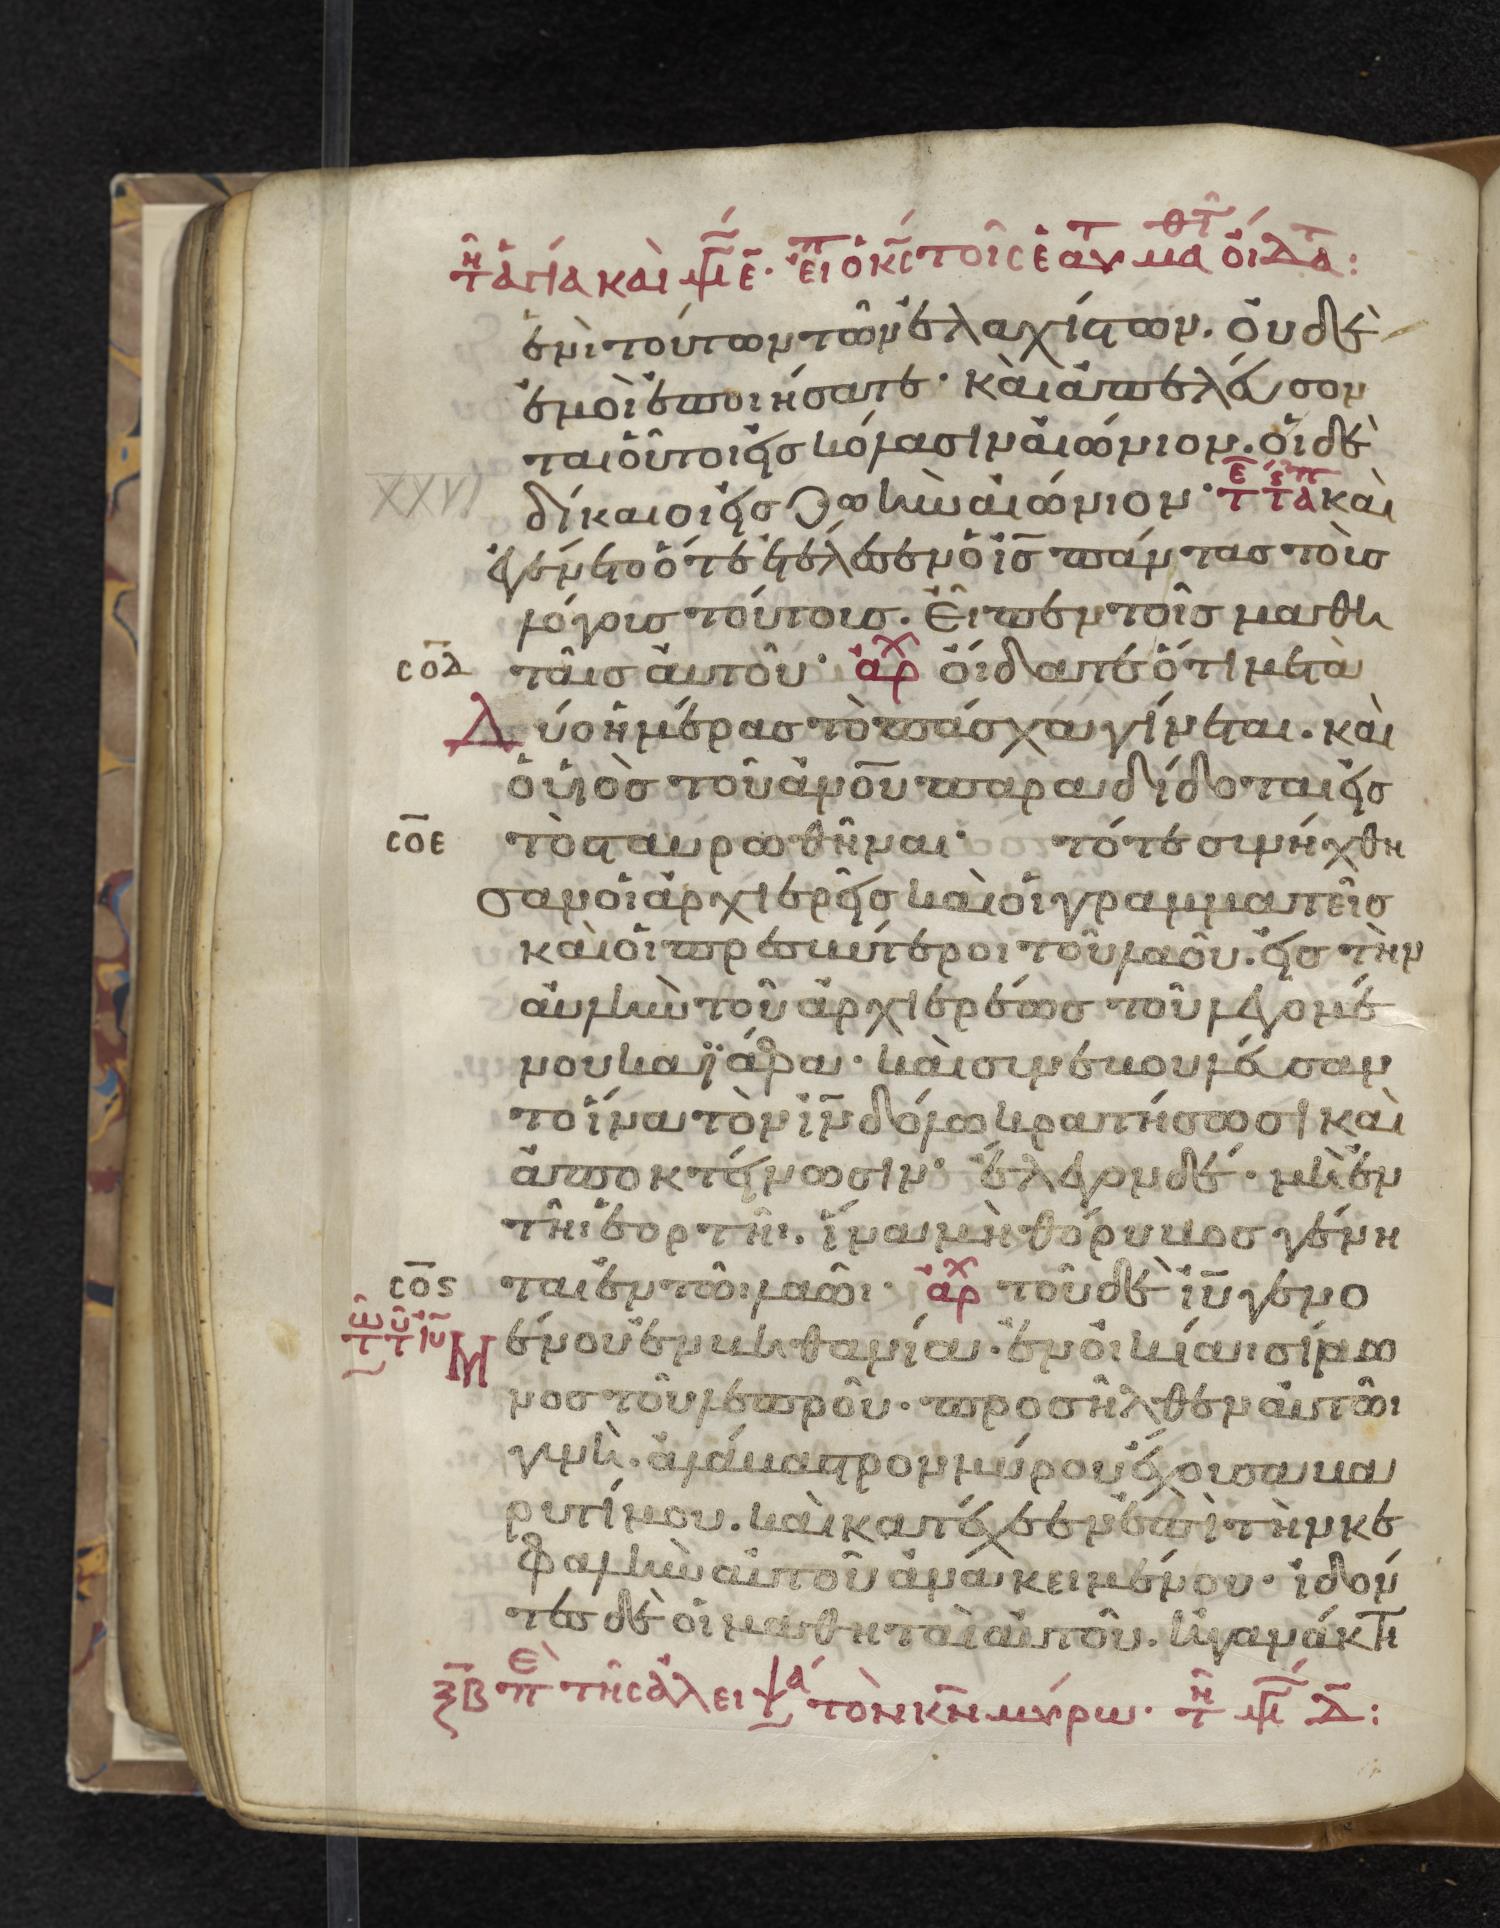 τῆ ἁγία καὶ μ̅ ε̅. εἶπ ὁ κ̅ς̅ τοῖς ἑαυτ μαθτ οἴδατ:
ἑνὶ τούτων τῶν ἐλαχίστων. οὐδὲ
ἐμοὶ ἐποιήσατε. καὶ ἀπελεύσον
ται οὗτοι εἰς κόλασιν αἰώνιον. οἱ δὲ
XXVI
δίκαιοι εἰς ζωὴν αἰώνιον. καὶ
ἐγένετο ὅτε ἐτέλεσεν ὁ ι̅ς̅ πάντας τοὺς
λόγους τούτους. Εἶπεν τοῖς μαθη
ϲ̅ο̅δ̅ ταῖς αὐτοῦ. ἀρχ οἴδατε ὅτι μετὰ
Δύο ἡμέρας τὸ πάσχα γίνεται. καὶ
ὁ υἱὸς τοῦ ἀν̅ο̅υ̅ παραδίδοται εἰς
ϲ̅ο̅ε̅ τὸ σταυρωθῆναι. τότε συνήχθη
σαν οἱ ἀρχιερεῖς καὶ οἱ γραμματεῖς
καὶ οἱ πρεσβύτεροι τοῦ λαοῦ. εἰς τὴν
αὐλὴν τοῦ ἀρχιερέως τοῦ λεγομέ
νου καϊάφα. καὶ συνεβουλεύσαν
το ἵνα τὸν ι̅ν̅ δόλω κρατήσωσι καὶ
ἀποκτείνωσιν. ἔλεγον δέ. μὴ ἐν
τῆι ἑορτῆι. ἵνα μὴ θόρυβος γένη
ϲ̅ο̅ϛ̅ ται ἐν τῶι λαῶι. ἀρχ τοῦ δὲ ι̅υ̅ γενο
μένου ἐν βηθανία. ἐν οἰκία σίμω
νος τοῦ λεπροῦ. προσῆλθεν αὐτῶι
γυνὴ. ἀλάβαστρον μύρου ἔχουσα βα
ρυτίμου. καὶ κατέχεεν ἐπὶ τὴν κε
φαλὴν αὐτοῦ ἀνακειμένου. ἰδόν
τες δὲ οἱ μαθηταὶ αὐτοῦ. ἠγανάκτη
ξ̅β̅ πε τῆς ἀλειψά τὸν κ̅ν̅ μύρω. τῆ μ̅ δ̅: